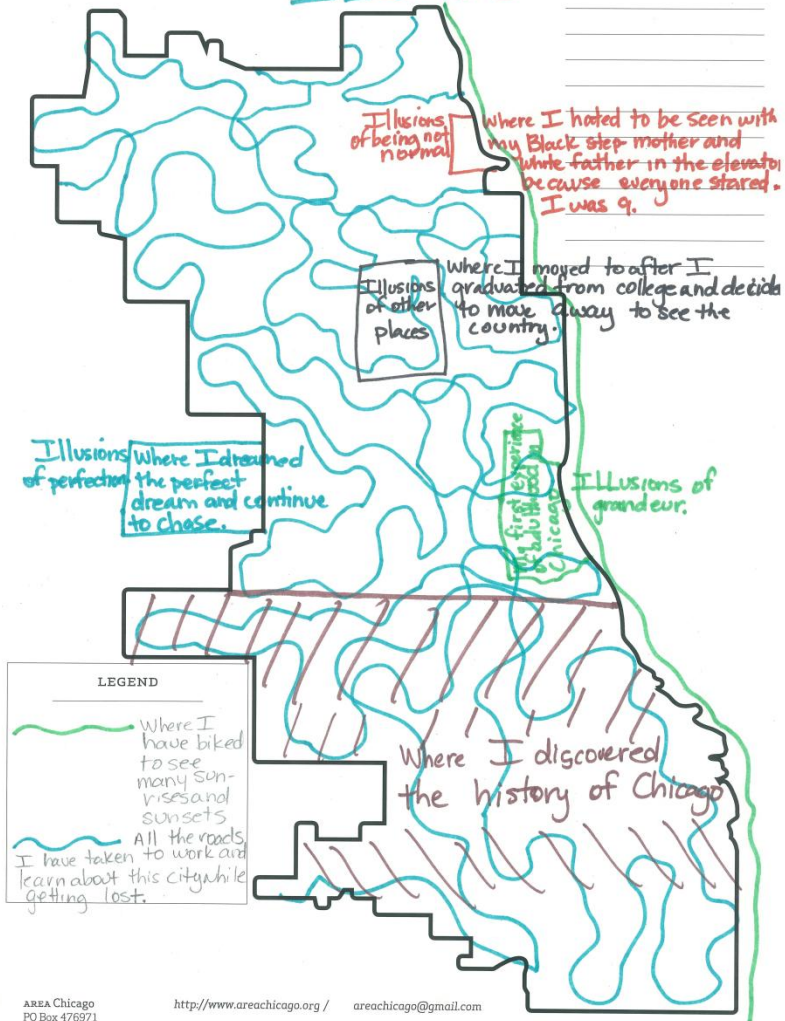 Illusions
of being not
normal
Where I hated to be seen with
my Black step mother and
white father in the elevato
because everyone stared.
I was 9.
Illusions
of other
places
where I moved to after I
graduated from college and decide
to move away to see the
country.
Illusions
of perfection
Where I dreamed
the perfect
dream and continue
to chase.
My first experience
of adulthood in
Chicago
Illusions of
grandeur.
LEGEND
Where I
have biked
to see
many sun-
rises and
sunsets
All the roads
I have taken to work and
learn about this city while
getting lost.
Where I discovered
the history of Chicago
AREA Chicago
PO Box 476971
http://www.areachicago.org /
areachicago@gmail.com